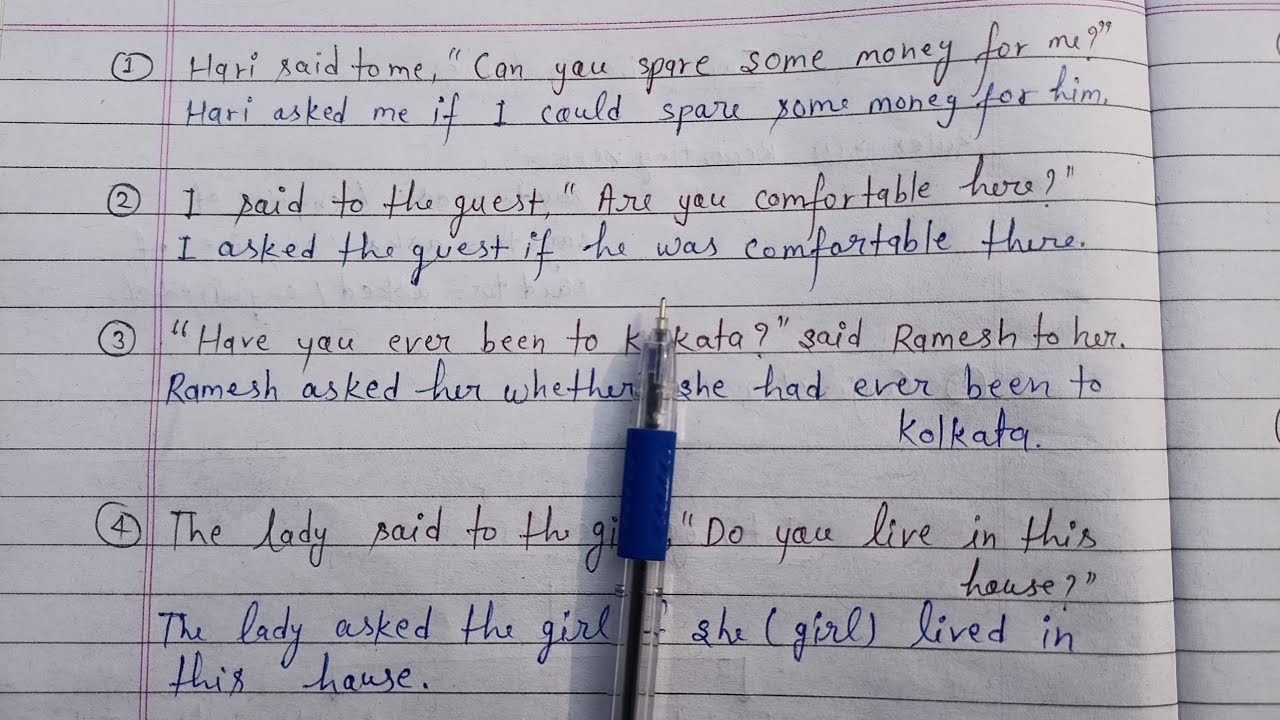 ① Hari said to me, "Can you spare some money for me?"
Hari asked me if I could spare some money for him.
② I said to the guest, "Are you comfortable here?"
I asked the guest if he was comfortable there.
③ "Have you ever been to Kolkata?" said Ramesh to her.
Ramesh asked her whether she had ever been to
Kolkata.
④ The lady said to the "Do you live in this
house?"
The lady asked the girl she (girl) lived in
this house.